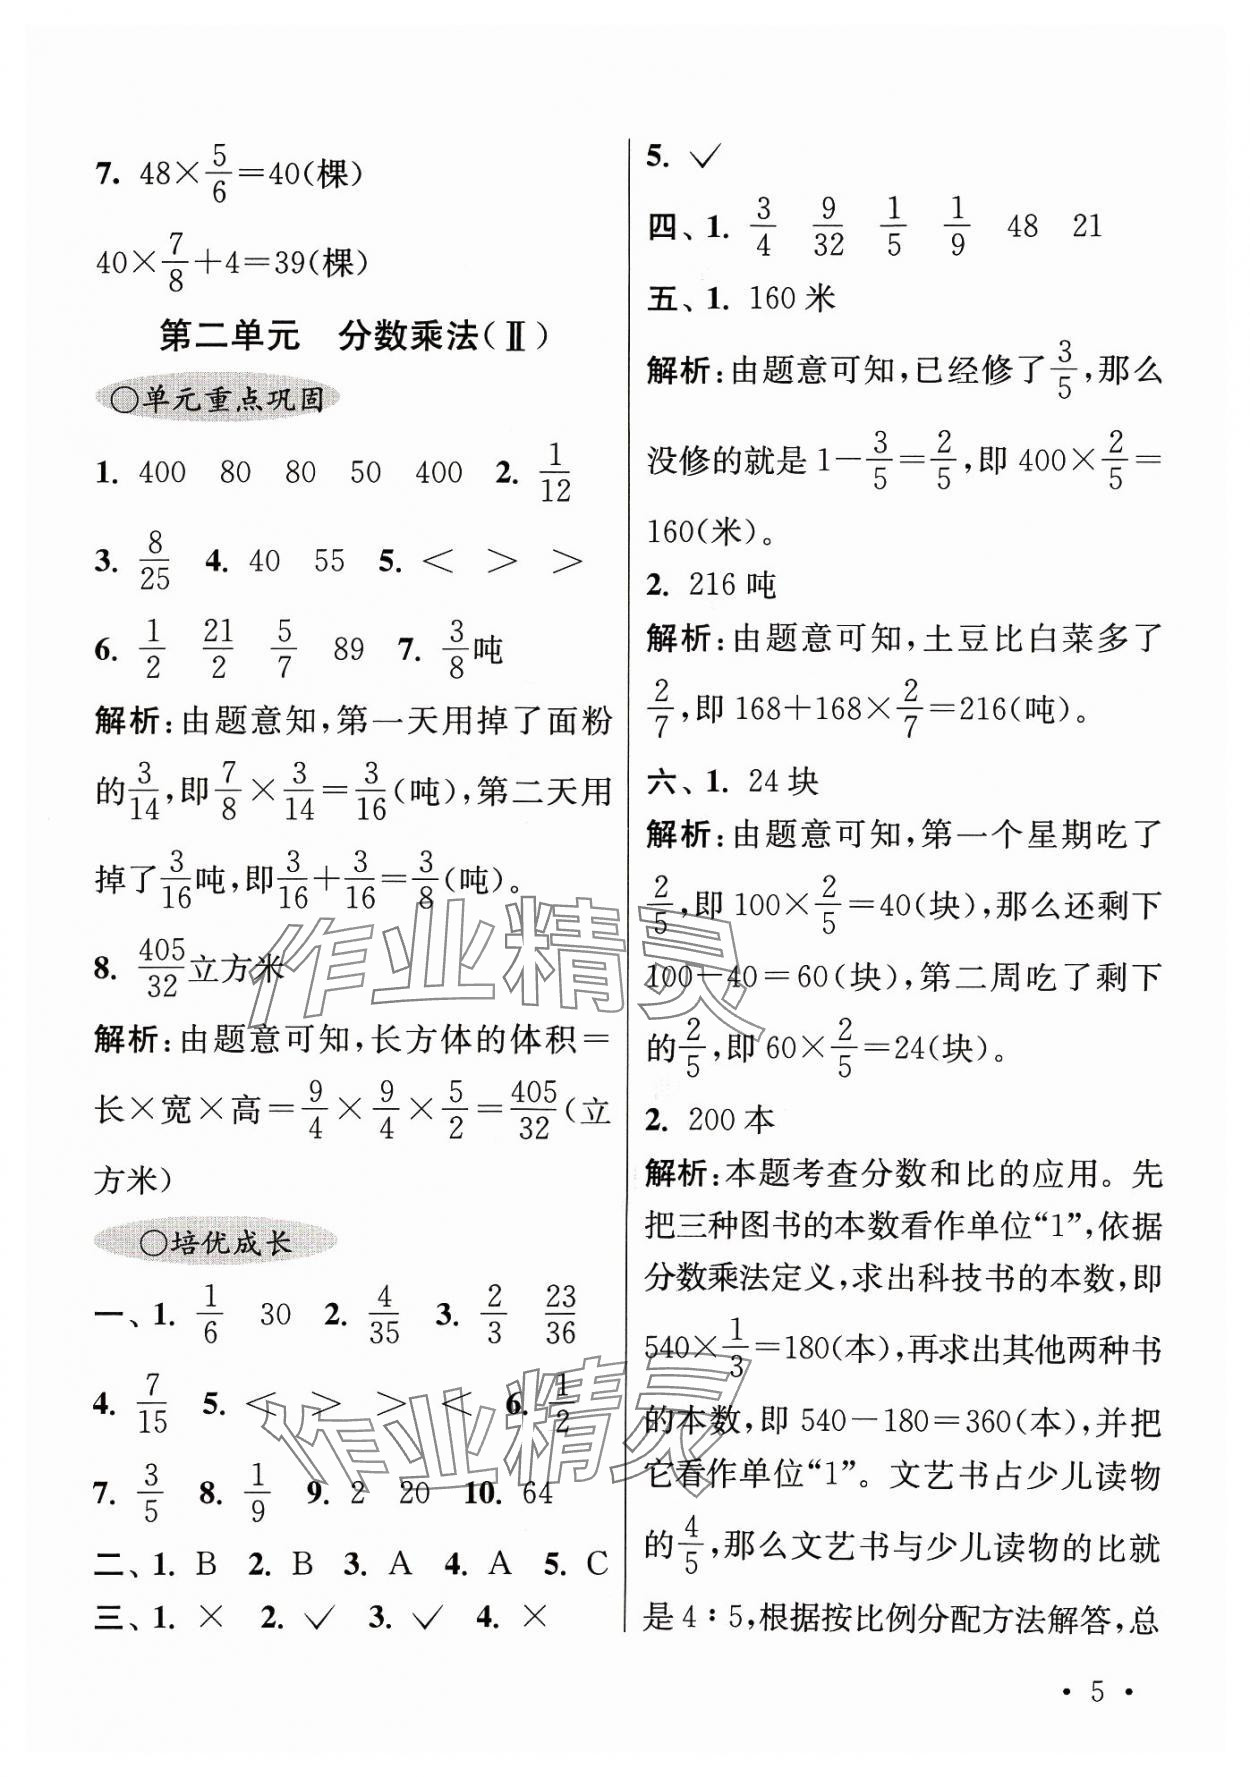 7. 48×5/6=40(棵)
40×7/8+4=39(棵)
第二单元 分数乘法(Ⅱ)
○单元重点巩固
1. 400 80 80 50 400 2. 1/12
3. 8/25 4. 40 55 5. < > >
6. 1/2 21/2 5/7 89 7. 3/8吨
解析:由题意知,第一天用掉了面粉
的3/14,即7/8×3/14=3/16(吨),第二天用
掉了3/16吨,即3/16+3/16=3/8(吨)。
8. 405/32立方米
解析:由题意可知,长方体的体积=
长×宽×高=9/4×9/4×5/2=405/32(立
方米)
○培优成长
一、1. 1/6 30 2. 4/35 3. 2/3 23/36
4. 7/15 5. < > > < 6. 1/2
7. 3/5 8. 1/9 9. 2 20 10. 64
二、1. B 2. B 3. A 4. A 5. C
三、1. × 2. ✓ 3. ✓ 4. ×
5. ✓
四、1. 3/4 9/32 1/5 1/9 48 21
五、1. 160米
解析:由题意可知,已经修了3/5,那么
没修的就是1-3/5=2/5,即400×2/5=
160(米)。
2. 216吨
解析:由题意可知,土豆比白菜多了
2/7,即168+168×2/7=216(吨)。
六、1. 24块
解析:由题意可知,第一个星期吃了
2/5,即100×2/5=40(块),那么还剩下
100-40=60(块),第二周吃了剩下
的2/5,即60×2/5=24(块)。
2. 200本
解析:本题考查分数和比的应用。先
把三种图书的本数看作单位“1”,依据
分数乘法定义,求出科技书的本数,即
540×1/3=180(本),再求出其他两种书
的本数,即540-180=360(本),并把
它看作单位“1”。文艺书占少儿读物
的4/5,那么文艺书与少儿读物的比就
是4∶5,根据按比例分配方法解答,总
·5·
作业精灵
作业精灵